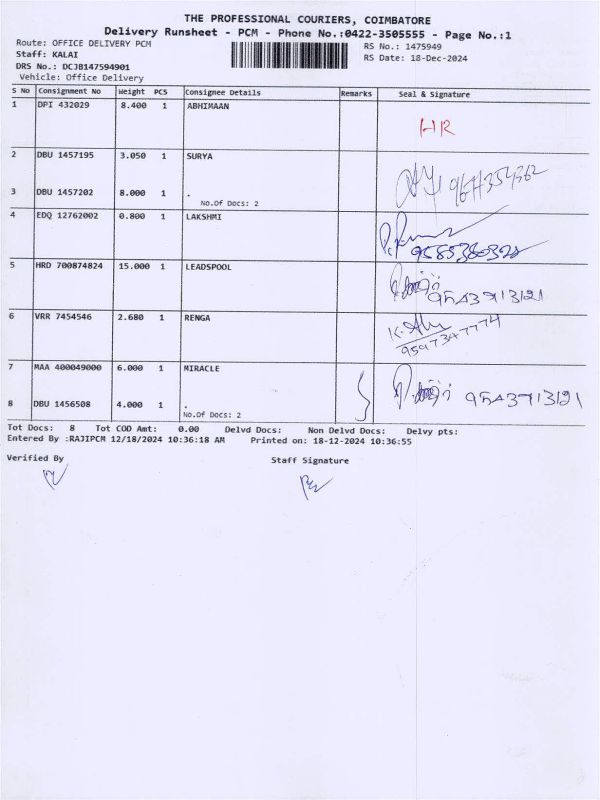 THE PROFESSIONAL COURIERS, COIMBATORE
Delivery Runsheet - PCM - Phone No.:0422-3505555 - Page No.:1
Route: OFFICE DELIVERY PCM
RS No.: 1475949
Staff: KALAI
RS Date: 18-Dec-2024
DRS No.: DCJB147594901
Vehicle: Office Delivery
S No Consignment No Weight PCS Consignee Details Remarks Seal & Signature
1 DPI 432029 8.400 1 ABHIMAAN
HR
2 DBU 1457195 3.050 1 SURYA
3 DBU 1457202 8.000 1 .
No.Of Docs: 2
4 EDQ 12762002 0.800 1 LAKSHMI
9585380328
5 HRD 700874824 15.000 1 LEADSPOOL
9543713121
6 VRR 7454546 2.680 1 RENGA
9597347774
7 MAA 400049000 6.000 1 MIRACLE
9543713121
8 DBU 1456508 4.000 1 .
No.Of Docs: 2
Tot Docs: 8 Tot COD Amt: 0.00 Delvd Docs: Non Delvd Docs: Delvy pts:
Entered By :RAJIPCM 12/18/2024 10:36:18 AM Printed on: 18-12-2024 10:36:55
Verified By Staff Signature